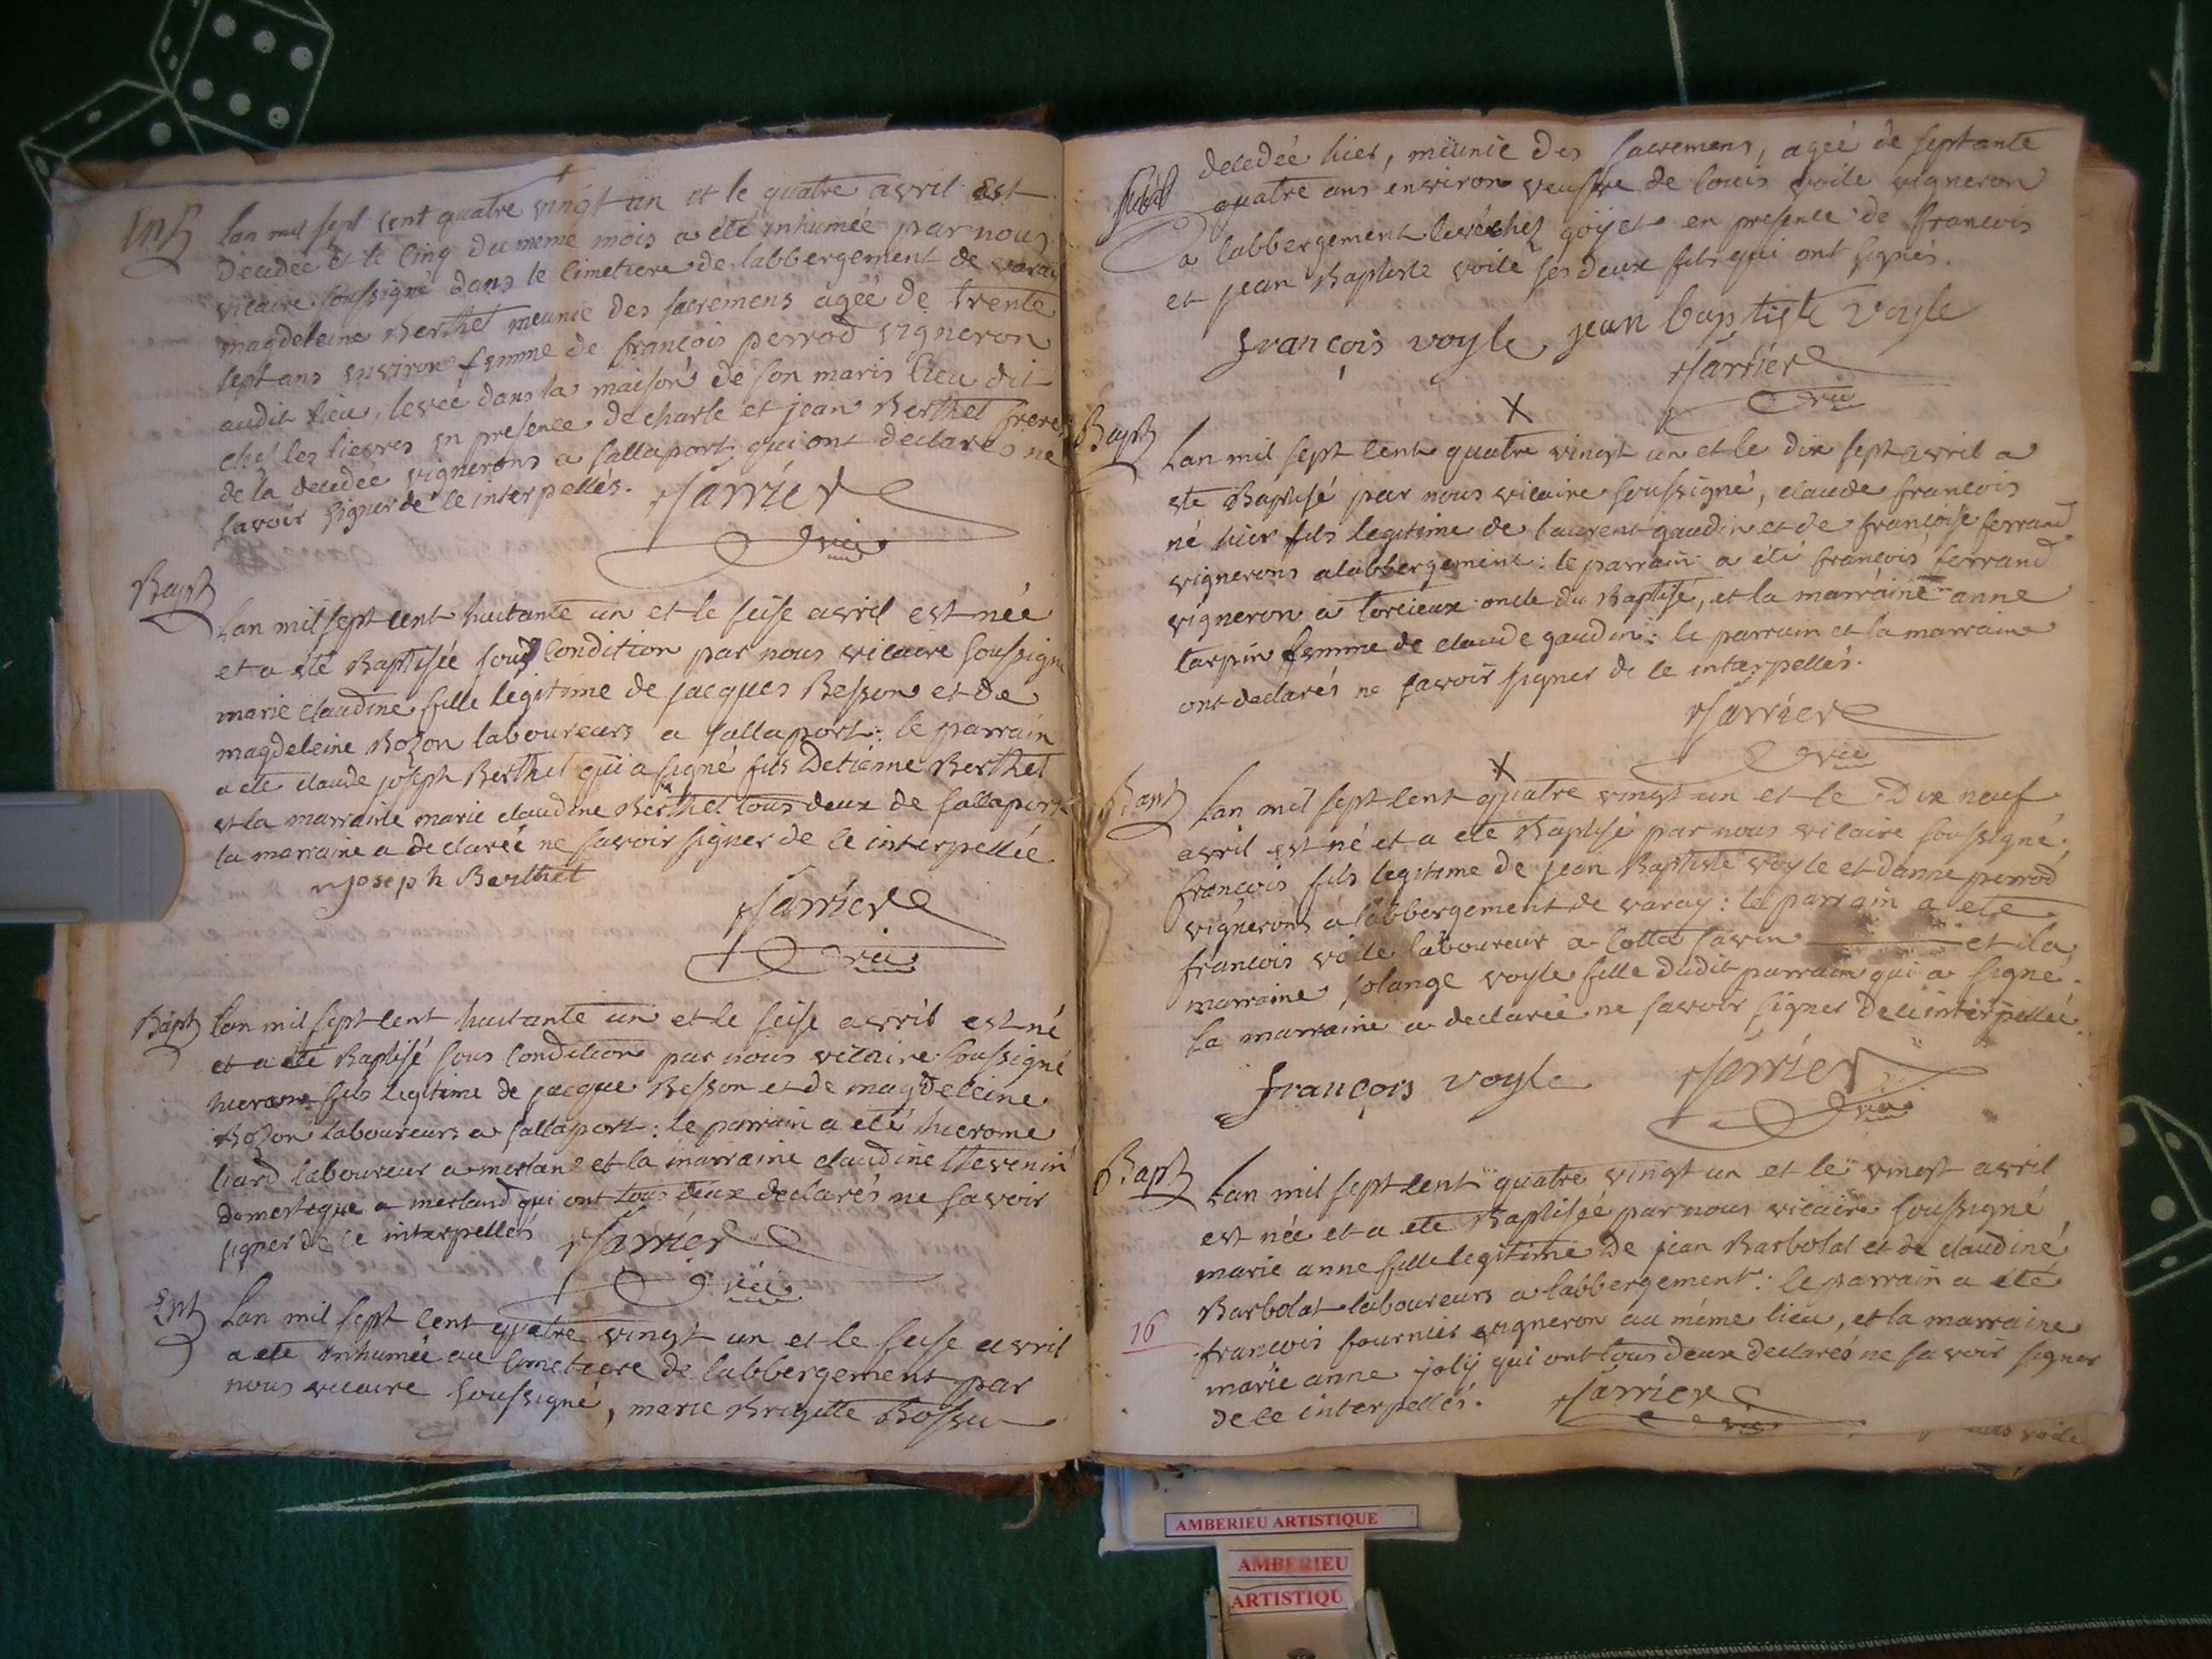 lan mil sept cent quatre vingt un et le quatre avril est
decedée et le cinq du meme mois a été inhumée par nous
vicaire soussigné dans le cimetiere de labbergement de varay
magdeleine Berthet meunie des sacremens agée de trente
sept ans environ femme de françois perrod vigneron
audit lieu, levée dans la maison de son maris lieu dit
chez les lievres en presence de charle et jean Berthet freres
de la decedée vignerons a sallaport qui ont declarés ne
savoir signer de ce interpellés.
vic
Bapt
Lan mil sept cent huitante un et le seise avril est née
et a été Baptisée sous Condition par nous vicaire soussigné
marie claudine fille legitime de jacques Besson et de
magdeleine Bozon laboureurs a sallaport: le parrain
a ete claude joseph Berthet qui a signé fils Detienne Berthet
et la marraine marie claudine Berthet tous deux de sallaport
la marraine a declareé ne savoir signer de ce interpellée
joseph Berthet
vic
Bapt
Lan mil sept cent huitante un et le seise avril est né
et a été Baptisé sous Condition par nous vicaire soussigné
hierome fils legitime de jacque Besson et de magdeleine
Bozon laboureurs a sallaport: le parrain a eté hierome
liard laboureur a merland et la marraine claudine thevenin
domestique a merland qui ont tous deux declarés ne savoir
signer de ce interpellés
vic
Lan mil sept cent quatre vingt un et le seise avril
a ete inhumée au cimetiere de labbergement par
nous vicaire soussigné, marie Brigitte Bossu
decedée hier, meunie des sacremens, agée de septante
quatre ans environ veufve de louis voile vigneron
a labbergement levée chez goyet en presence de francois
et jean Baptiste voile ses deux fils qui ont signés.
françois voyle jean baptiste voyle
vic
Bapt
Lan mil sept cent quatre vingt un et le dix sept avril a
ete Baptisé par nous vicaire soussigné, claude francois
né hier fils legitime de laurent gaudin et de francoise ferrand
vignerons a labbergement: le parrain a eté francois ferrand
vigneron a torcieux oncle du Baptisé, et la marraine anne
tarpin femme de claude gaudin: le parrain et la marraine
ont declarés ne savoir signer de ce interpellés.
vic
Bapt
Lan mil sept cent quatre vingt un et le Dix neuf
avril est né et a ete Baptisé par nous vicaire soussigné
francois fils legitime de jean Baptiste voyle et danne perrod
vignerons a labbergement de varay: le parrain a ete
francois voile laboureur a cotta savin et la
marraine solange voyle fille dudit parrain qui a signé.
la marraine a declareé ne savoir signer de ce interpellée
françois voyle
vic
Bapt
Lan mil sept cent quatre vingt un et le vingt avril
est née et a ete Baptisée par nous vicaire soussigné
marie anne fille legitime de jean Barbolat et de claudine
Barbolat laboureurs a labbergement: le parrain a été
francois fournier vigneron au même lieu, et la marraine
16
marie anne joly qui ont tous deux declarés ne savoir signer
de ce interpellés.
voile
AMBERIEU ARTISTIQUE
AMBERIEU
ARTISTIQU